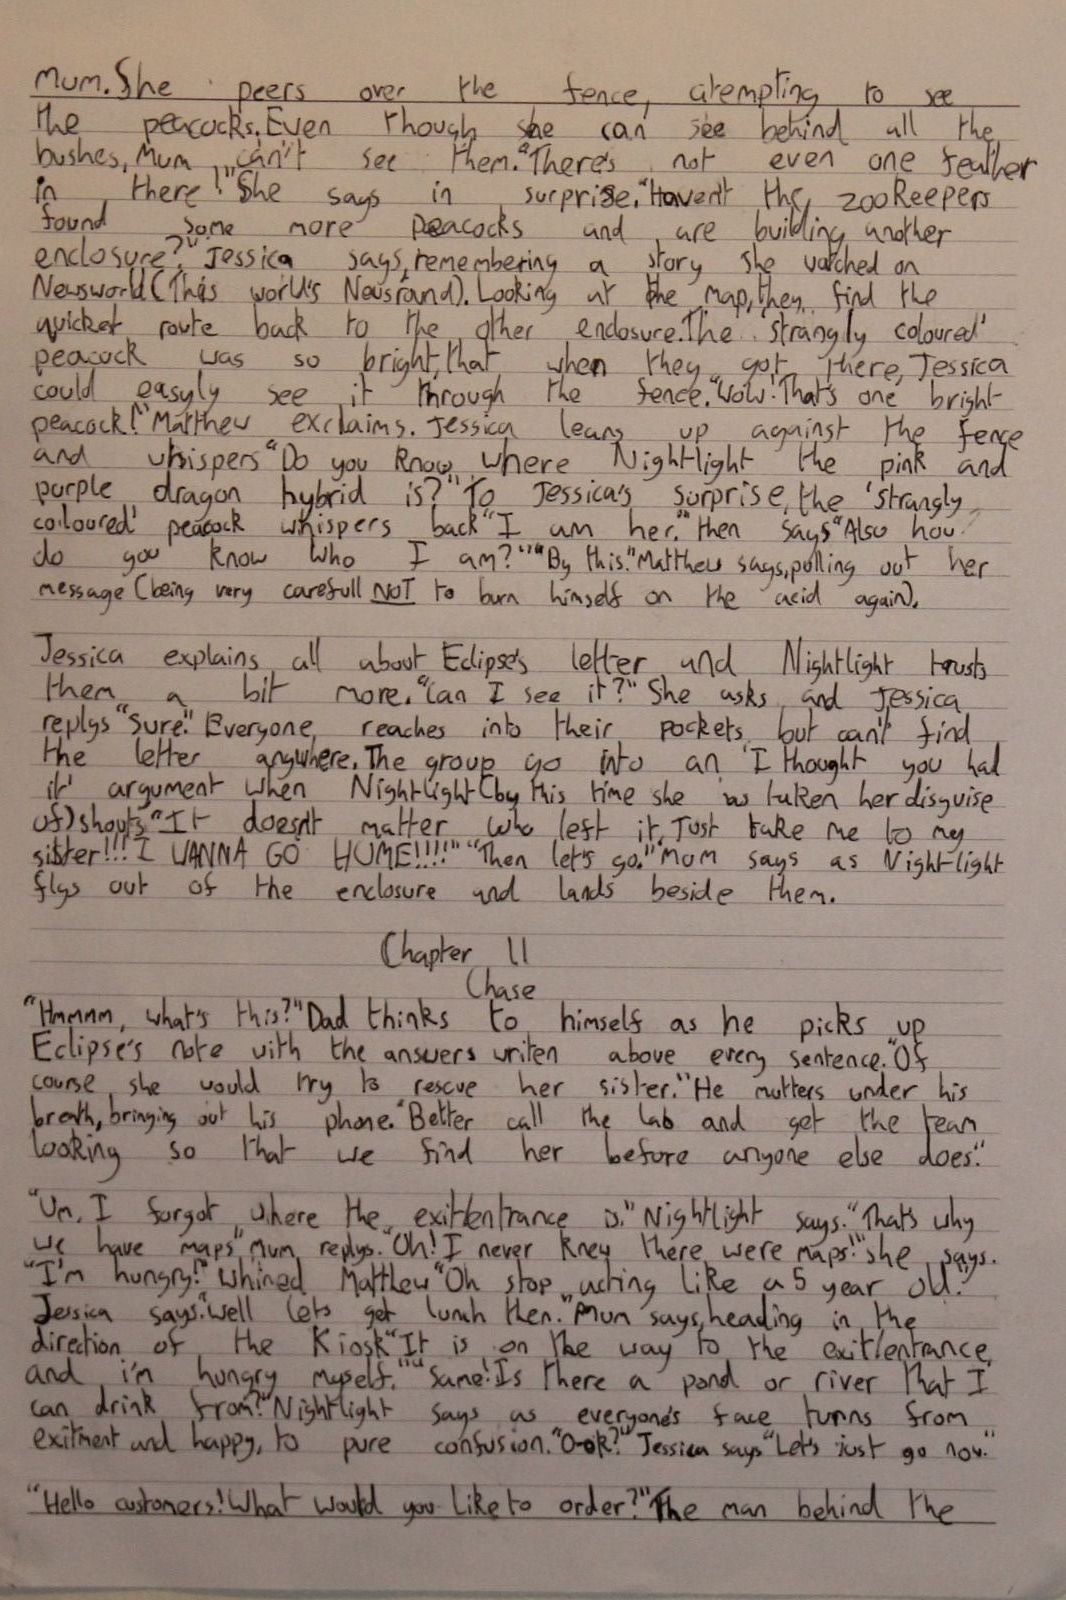 Mum. She peers over the fence, atempting to see
the peacocks. Even though she can see behind all the
bushes, Mum can't see them. "There's not even one feather
in there!" She says in surprise. "Haven't the zookeepers
found some more peacocks and are building another
enclosure?" Jessica says, remembering a story she watched on
Newsworld (This world's Newsround). Looking at the map, they find the
quicket route back to the other enclosure. The 'strangly coloured'
peacock was so bright, that when they got there, Jessica
could easyly see it through the fence. "Wow! That's one bright
peacock!" Matthew exclaims. Jessica leans up against the fence
and whispers "Do you know where Nightlight the pink and
purple dragon hybrid is?" To Jessica's surprise, the 'strangly
coloured' peacock whispers back "I am her." then says "Also how
do you know who I am?" "By this." Matthew says, pulling out her
message (being very carefull NOT to burn himself on the acid again).
Jessica explains all about Eclipse's letter and Nightlight trusts
them a bit more. "Can I see it?" She asks and Jessica
replys "Sure." Everyone reaches into their pockets but can't find
the letter anywhere. The group go into an 'I thought you had
it' argument when Nightlight (by this time she has taken her disguise
of) shouts "It doesn't matter who left it, Just take me to my
sister!!! I WANNA GO HOME!!!!" "Then let's go." Mum says as Nightlight
flys out of the enclosure and lands beside them.
Chapter 11
Chase
"Hmmmm, what's this?" Dad thinks to himself as he picks up
Eclipse's note with the answers writen above every sentence. "Of
course she would try to rescue her sister." He mutters under his
breath, bringing out his phone. "Better call the lab and get the team
looking so that we find her before anyone else does."
"Um, I forgot where the exit/entrance is." Nightlight says. "That's why
we have maps" Mum replys. "Oh! I never knew there were maps!" she says.
"I'm hungry!" Whined Matthew "Oh stop acting like a 5 year old."
Jessica says. "Well lets get lunch then." Mum says, heading in the
direction of the Kiosk "It is on the way to the exit/entrance,
and i'm hungry myself." "Same! Is there a pond or river that I
can drink from?" Nightlight says as everyone's face turns from
exitment and happy, to pure confusion. "O-ok?" Jessica says "Let's just go now."
"Hello customers! What would you like to order?" The man behind the